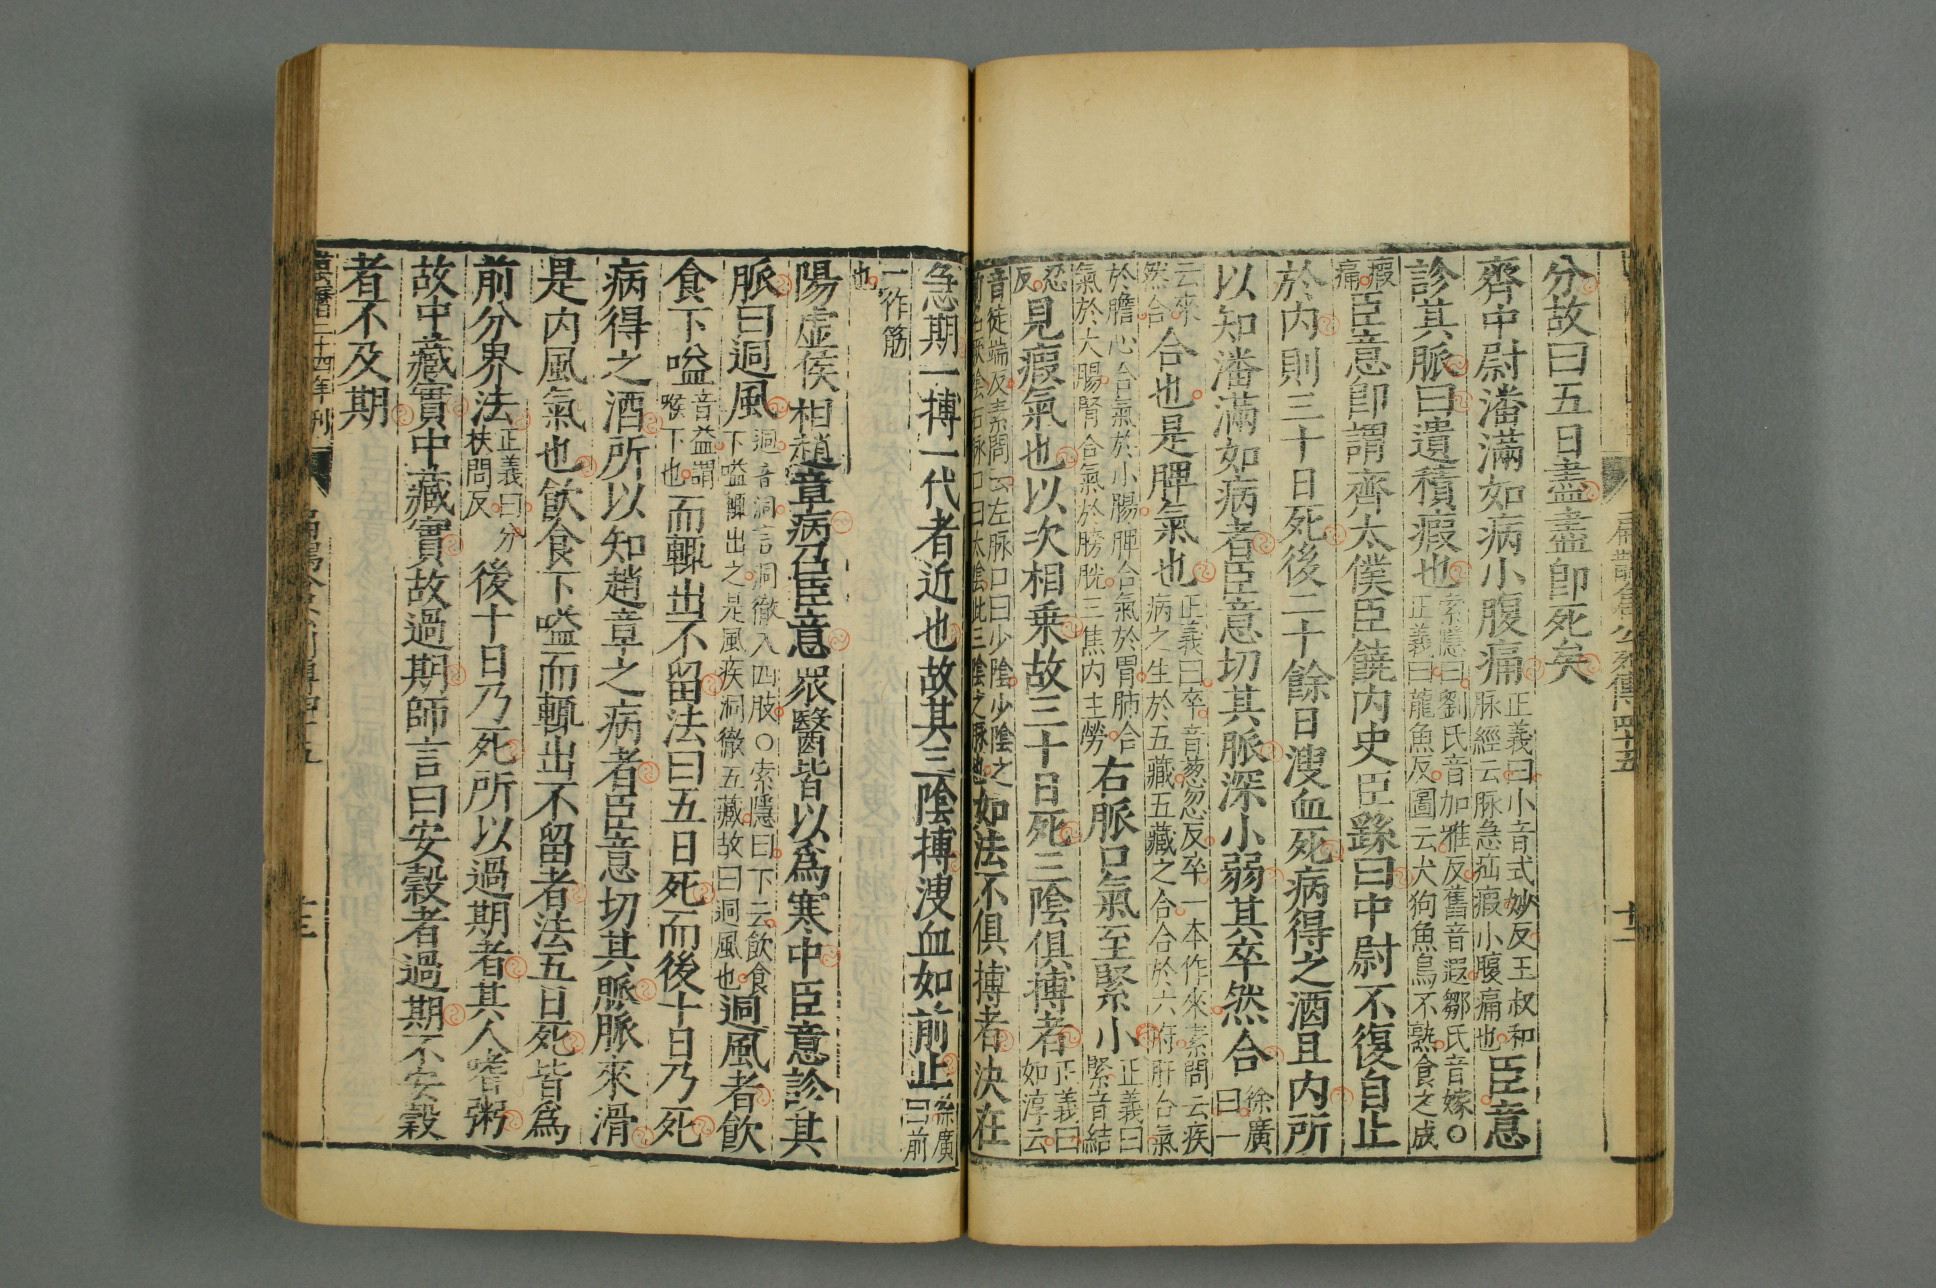 扁鵲倉公列傳四十五 十二
分故曰五日盡盡即死矣
齊中尉潘滿如病小腹痛正義曰小音式妙反王叔和脉經云脉急疝瘕小腹痛也臣意
診其脈曰遺積瘕也索隱曰劉氏音加雅反舊音遐鄒氏音嫁○正義曰龍魚反圖云犬狗魚鳥不熟食之成
瘕痛臣意即謂齊太僕臣饒內史臣繇曰中尉不復自止
於內則三十日死後二十餘日溲血死病得之酒且內所
以知潘滿如病者臣意切其脈深小弱其卒然合徐廣曰一
云來然合合也是脾氣也正義曰卒音葱忽反卒一本作來素問云疾病之生於五藏五藏之合合於六府肝合氣
於膽心合氣於小腸脾合氣於胃肺合氣於大腸腎合氣於膀胱三焦內主勞右脈口氣至緊小正義曰緊音結
忍反見瘕氣也以次相乘故三十日死三陰俱搏者正義曰如淳云
音徒端反素問云左脉口曰少陰少陰之前名厥陰右脉口曰太陰此三陰之脉也如法不俱搏者決在
急期一搏一代者近也故其三陰搏溲血如前止徐廣曰前
一作筋也
陽虛侯相趙章病召臣意衆醫皆以爲寒中臣意診其
脈曰迵風迵音洞言洞徹入四肢○索隱曰下云飲食下嗌輒出之是風疾洞徹五藏故曰迵風也迵風者飲
食下嗌音益謂喉下也而輒出不留法曰五日死而後十日乃死
病得之酒所以知趙章之病者臣意切其脈脈來滑
是內風氣也飲食下嗌而輒出不留者法五日死皆爲
前分界法正義曰分扶問反後十日乃死所以過期者其人嗜粥
故中藏實中藏實故過期師言曰安穀者過期不安穀
者不及期
萬曆二十四年刊 扁鵲倉公列傳四十五 十三